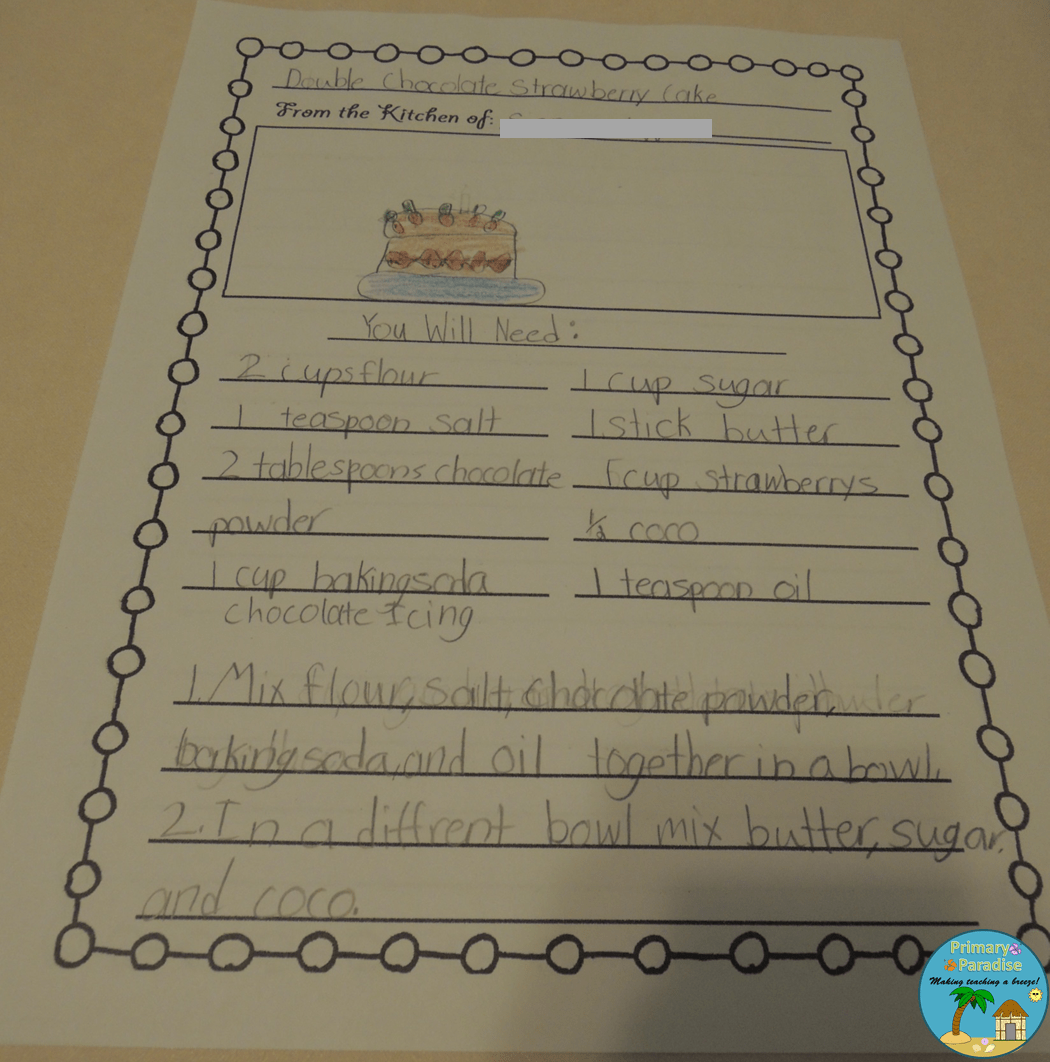 Double Chocolate Strawberry Cake
From the Kitchen of:
You Will Need:
2 cups flour
1 cup sugar
1 teaspoon salt
1 stick butter
2 tablespoons chocolate
1 cup strawberrys
powder
1/2 coco
1 cup bakingsoda
1 teaspoon oil
chocolate Icing
1. Mix flour, salt, chocolate powder,
baking soda, and oil together in a bowl.
2. In a diffrent bowl mix butter, sugar,
and coco.
Primary
Paradise
Making teaching a breeze!